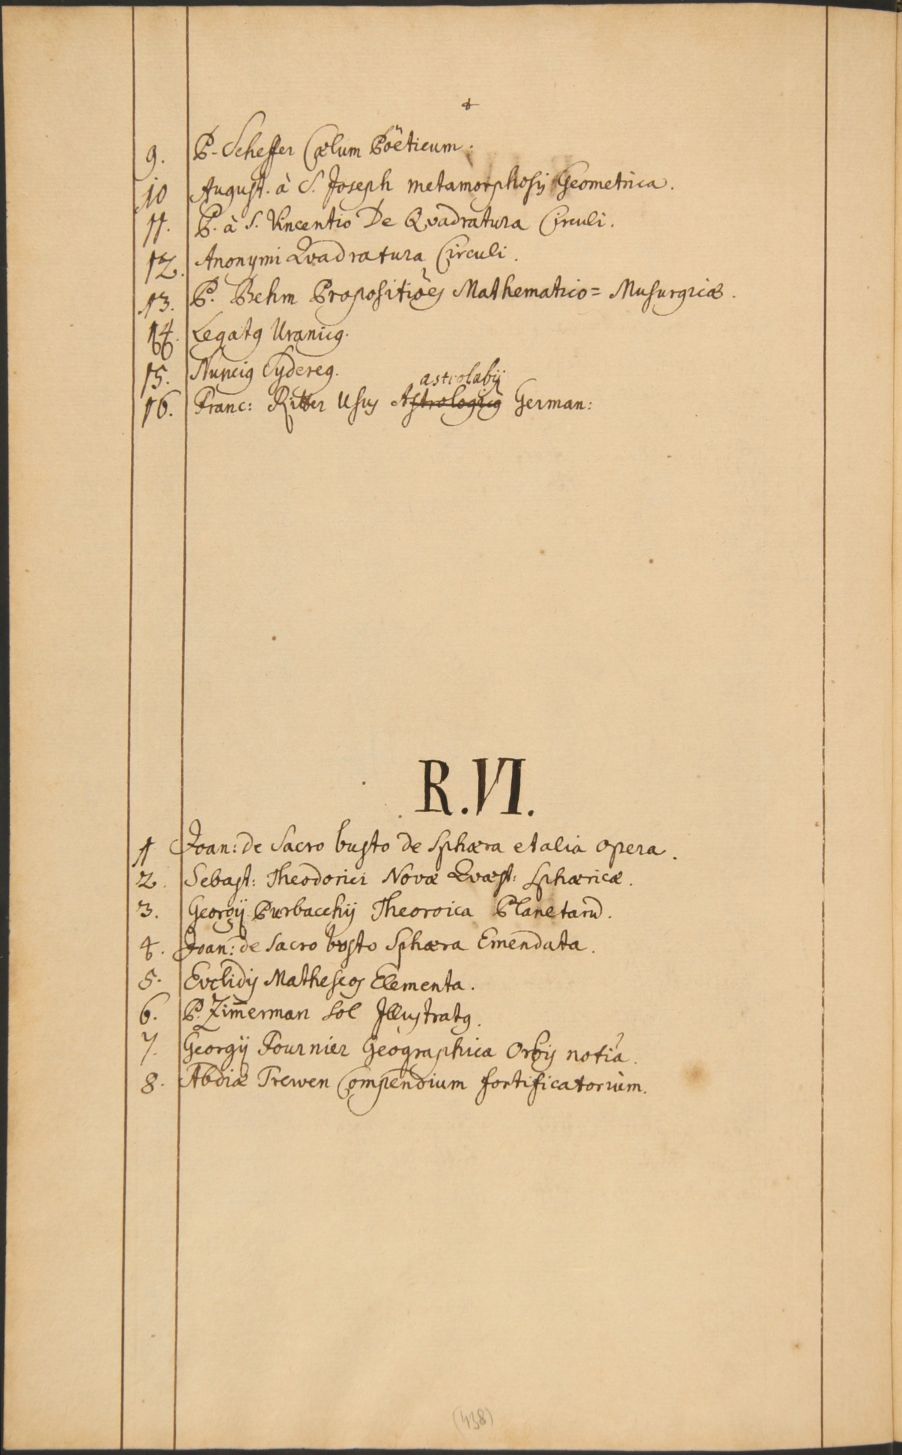 9. P. Scheffer Cœlum Poëticum.
10 August. à S. Joseph metamorphosis Geometrica.
11. P. à S. Vincentio De Qvadratura Circuli.
12. Anonymi Qvadratura Circuli.
13. P. Behm Propositiões Mathematico= Musurgicæ.
14. Legatꝰ Uranicꝰ.
15. Nunciꝰ Sydereꝰ.
astrolabij
16. Franc: Ritter Usus Astrologicꝰ German:
R.VI.
1 Joan: de Sacro busto de Sphæra et alia opera.
2. Sebast: Theodorici Novæ Qvæst: Sphæricæ.
3. Georgij Purbacchij Theoroica Planetarū.
4. Joan: de Sacro busto Sphæra Emendata.
5. Evclidis Matheseos Elementa.
6. P. Zim̄erman Sol Illustratꝰ.
7. Georgij Fournier Geographica Orbis notia.
8. Abdiæ Trewen Compendium fortificatorium.
(438)